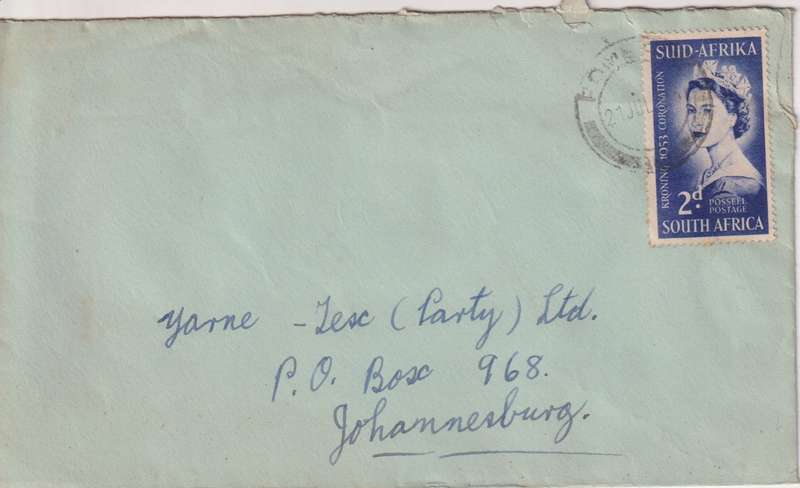 SUID-AFRIKA
KRONING 1953 CORONATION
2d.
POSSEEL
POSTAGE
SOUTH AFRICA
21 JUL
Yarne - Tex (Party) Ltd.
P.O. Box 968.
Johannesburg.